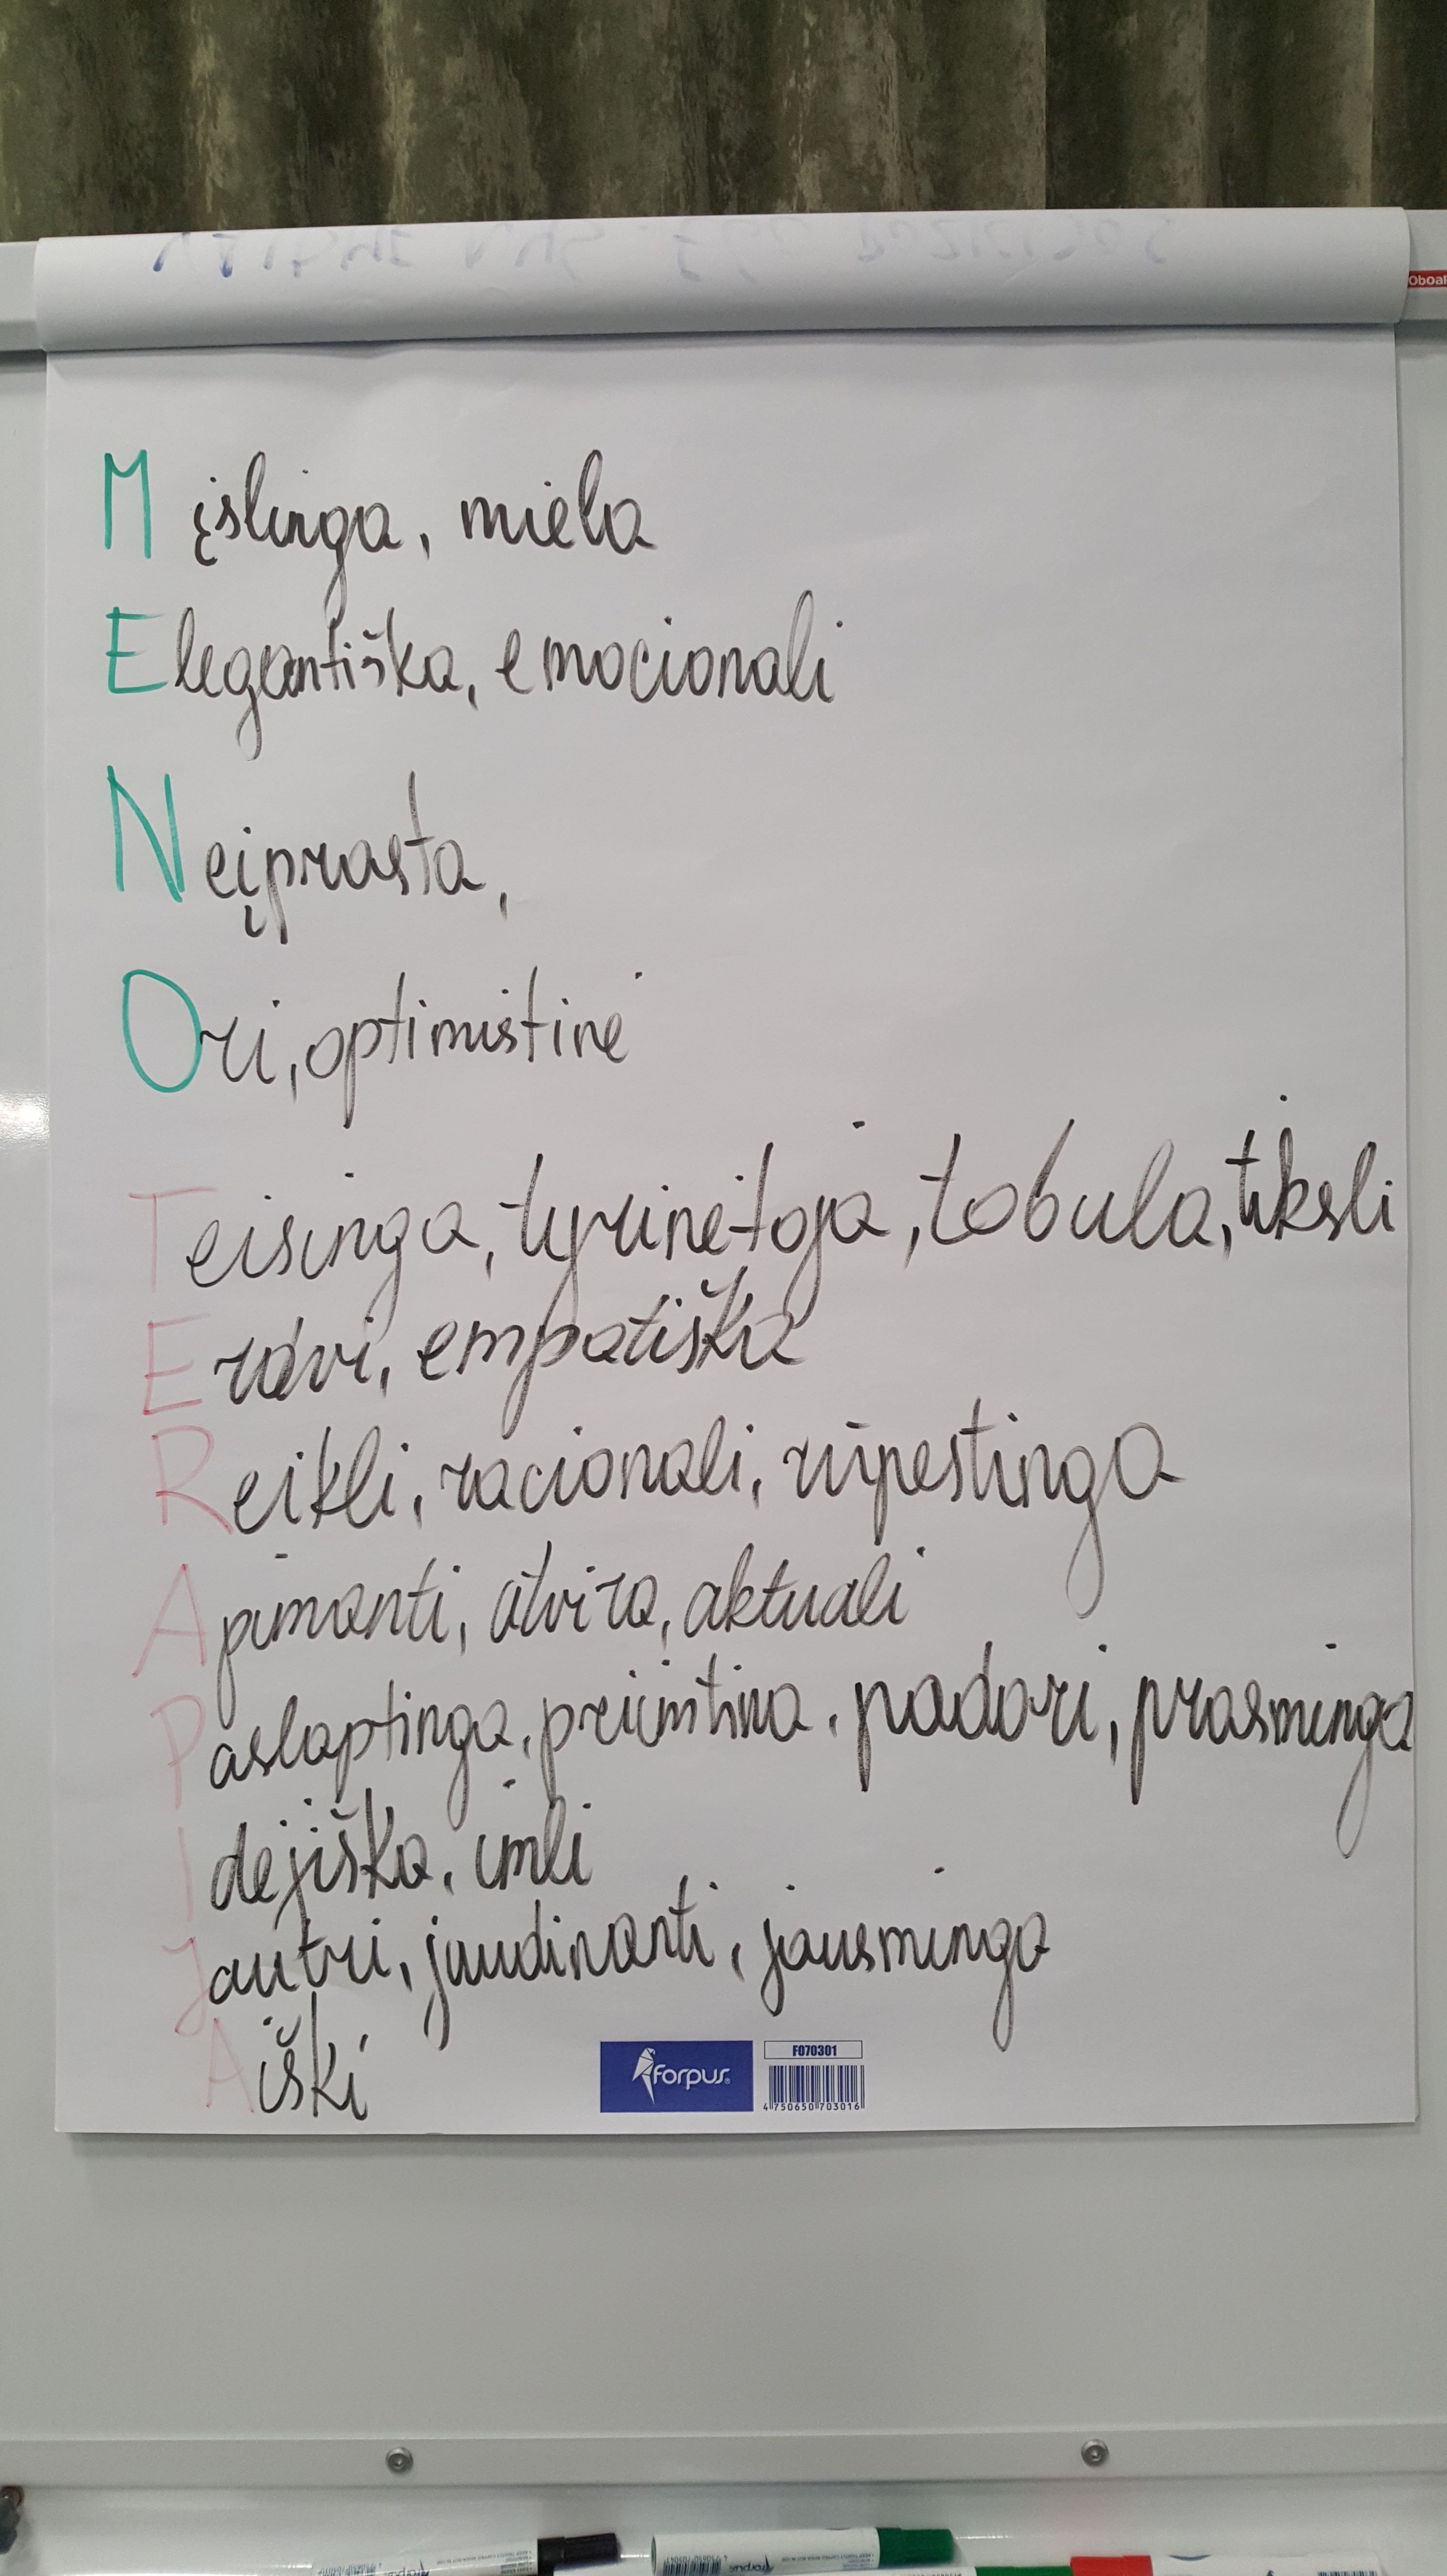 Mįslinga, miela
Elegantiška, emocionali
Neįprasta,
Ori, optimistinė
Teisinga, tyrinėtoja, tobula, tiksli
Erdvi, empatiška
Reikli, racionali, rūpestinga
Apimanti, atvira, aktuali
Paslaptinga, priimtina, padori, prasminga
Idėjiška, imli
Jautri, jaudinanti, jausminga
Aiški
forpus
FO70301
4 750650 703016
forpus